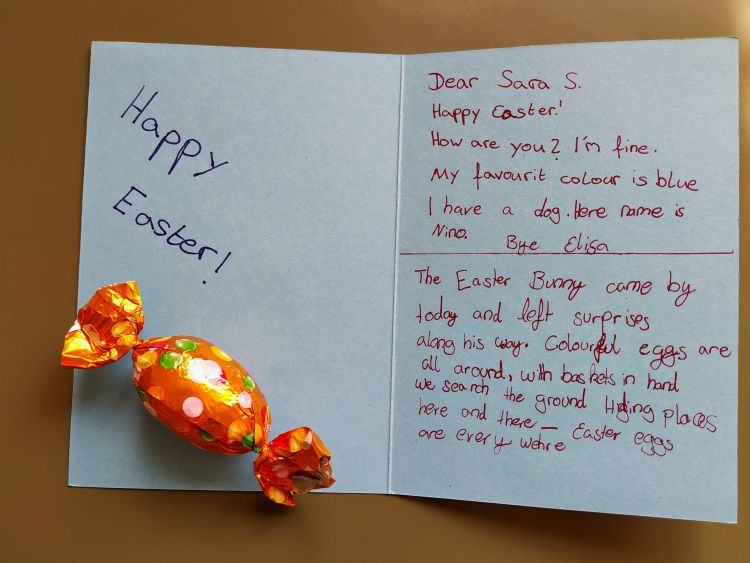 Happy
Easter!
Dear Sara S.
Happy Easter!
How are you? I'm fine.
My favourit colour is blue
I have a dog. Here name is
Nino.
Bye Elisa
The Easter Bunny came by
today and left surprises
along his way. Colourful eggs are
all around, with baskets in hand
we search the ground Hiding places
here and there _ Easter eggs
are every wehre